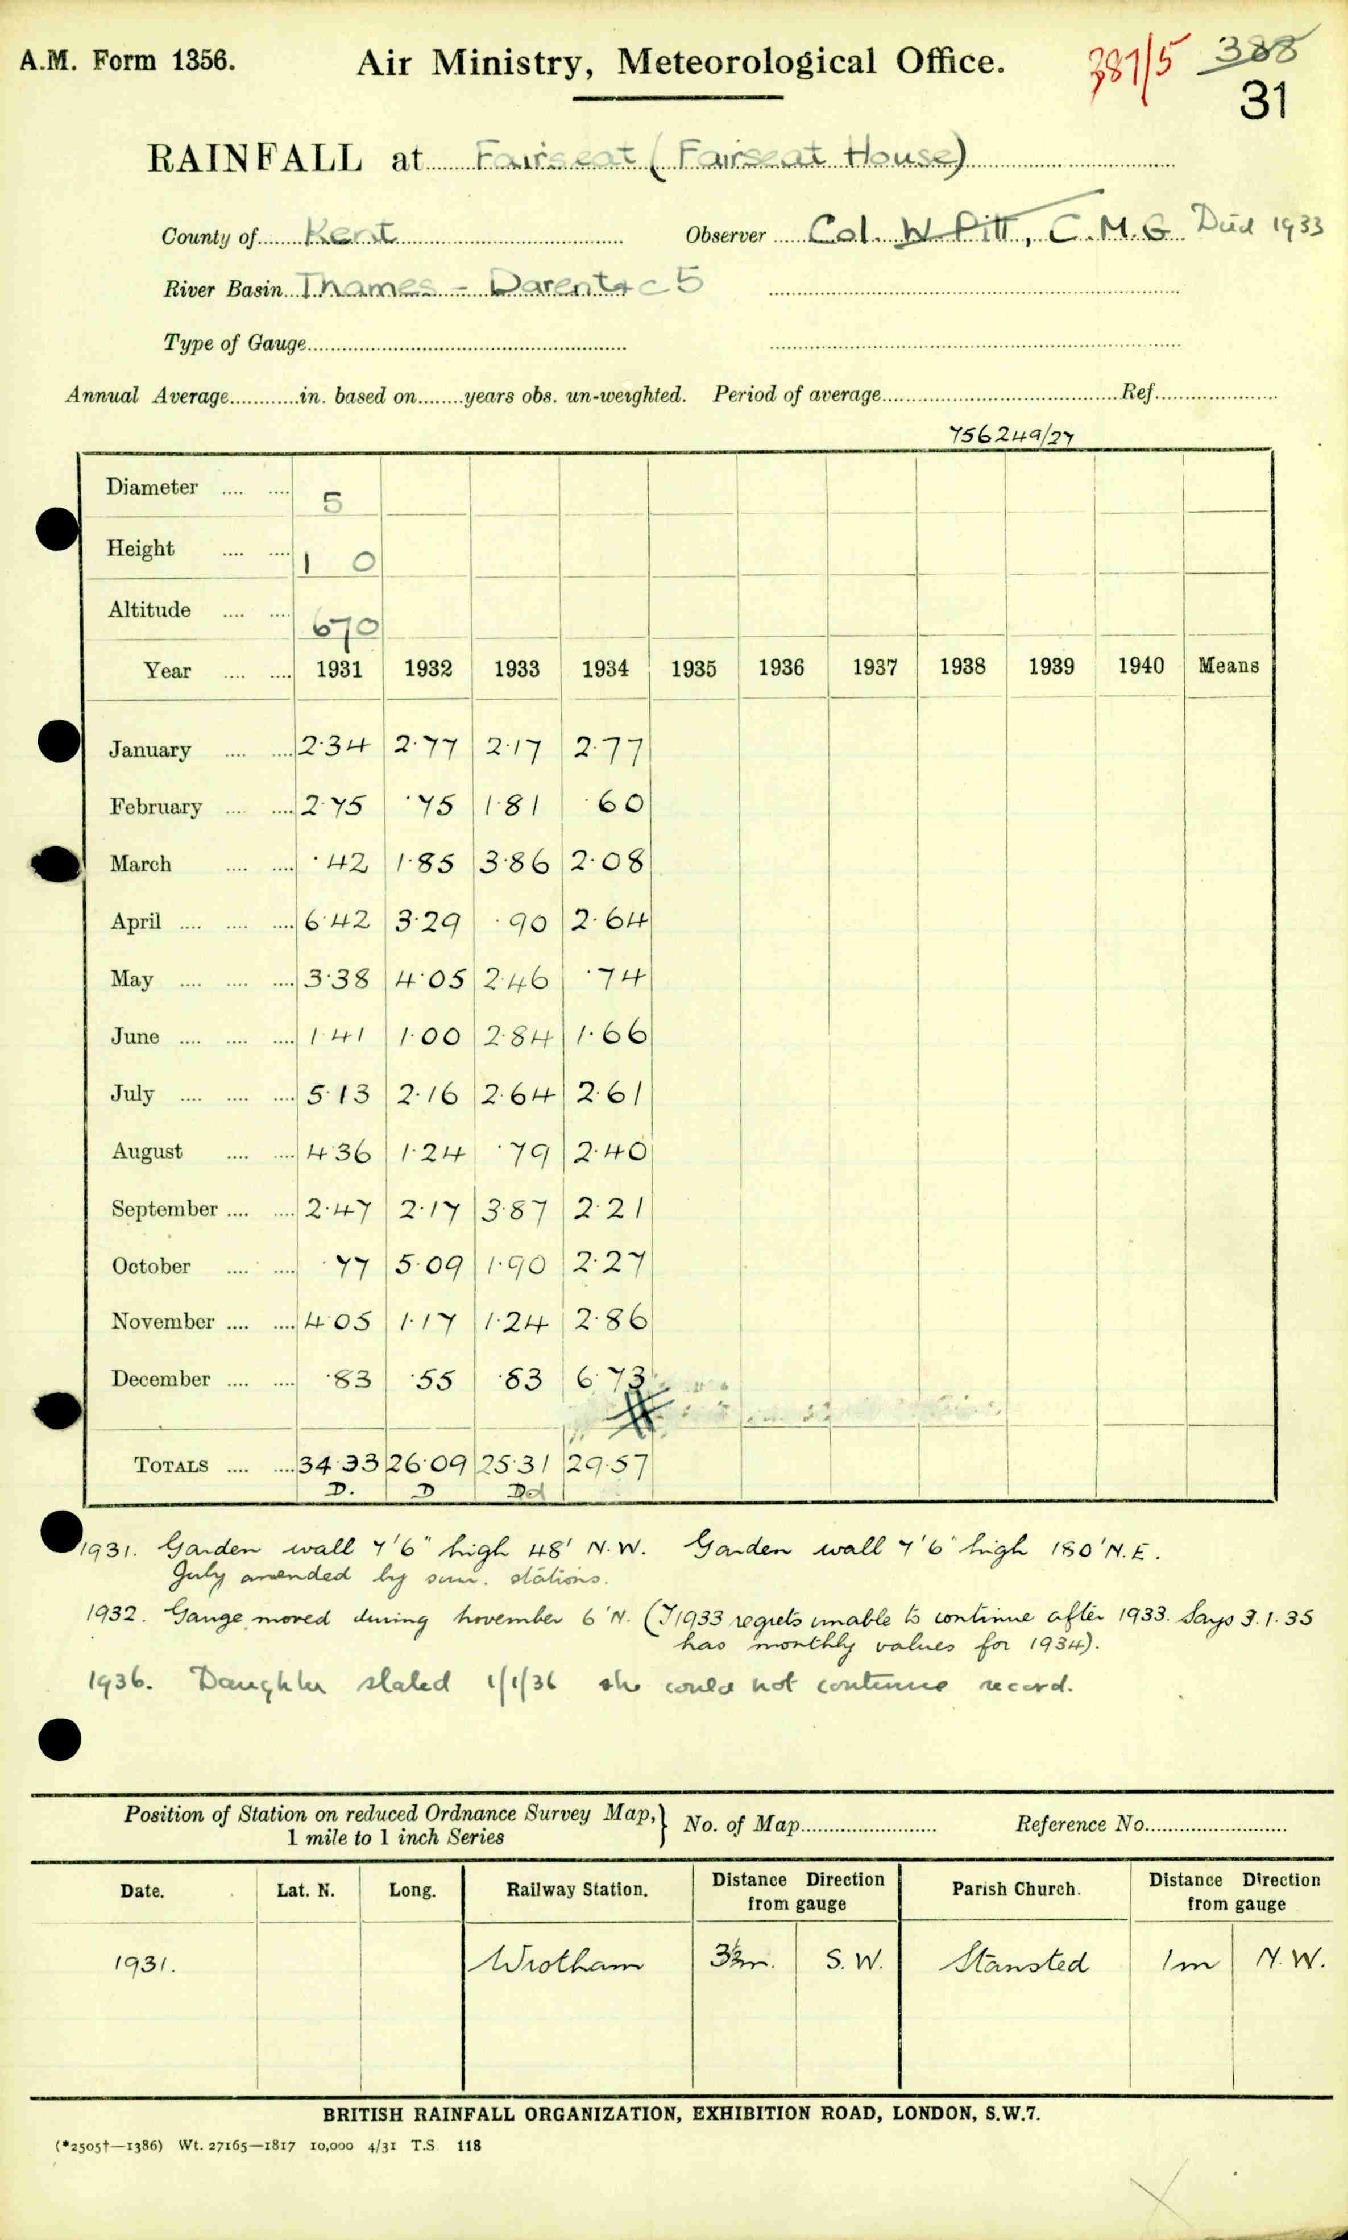 A.M. Form 1356. Air Ministry, Meteorological Office. 387/5 388
31
RAINFALL at Fairseat (Fairseat House)
County of Kent Observer Col. W. Pitt, C.M.G Died 1933
River Basin Thames - Darent + c 5
Type of Gauge
Annual Average in. based on years obs. un-weighted. Period of average Ref.
756249/27
Diameter 5
Height 1 0
Altitude 670
Year 1931 1932 1933 1934 1935 1936 1937 1938 1939 1940 Means
January 2.34 2.77 2.17 2.77
February 2.75 .75 1.81 .60
March .42 1.85 3.86 2.08
April 6.42 3.29 .90 2.64
May 3.38 4.05 2.46 .74
June 1.41 1.00 2.84 1.66
July 5.13 2.16 2.64 2.61
August 4.36 1.24 .79 2.40
September 2.47 2.17 3.87 2.21
October .77 5.09 1.90 2.27
November 4.05 1.17 1.24 2.86
December .83 .55 .83 6.73
TOTALS 34.33 26.09 25.31 29.57
D. D Dd
1931. Garden wall 7'6" high 48' N.W. Garden wall 7'6" high 180' N.E.
July amended by surr. stations.
1932. Gauge moved during november 6' N. (J1933 regrets unable to continue after 1933. Says 3.1.35
has monthly values for 1934).
1936. Daughter stated 1/1/36 she could not continue record.
Position of Station on reduced Ordnance Survey Map, } No. of Map Reference No.
1 mile to 1 inch Series
Date. Lat. N. Long. Railway Station. Distance Direction from gauge Parish Church. Distance Direction from gauge
1931. Wrotham 3½m. S.W. Stansted 1m N.W.
BRITISH RAINFALL ORGANIZATION, EXHIBITION ROAD, LONDON, S.W.7.
(*2505†—1386) Wt. 27165—1817 10,000 4/31 T.S 118